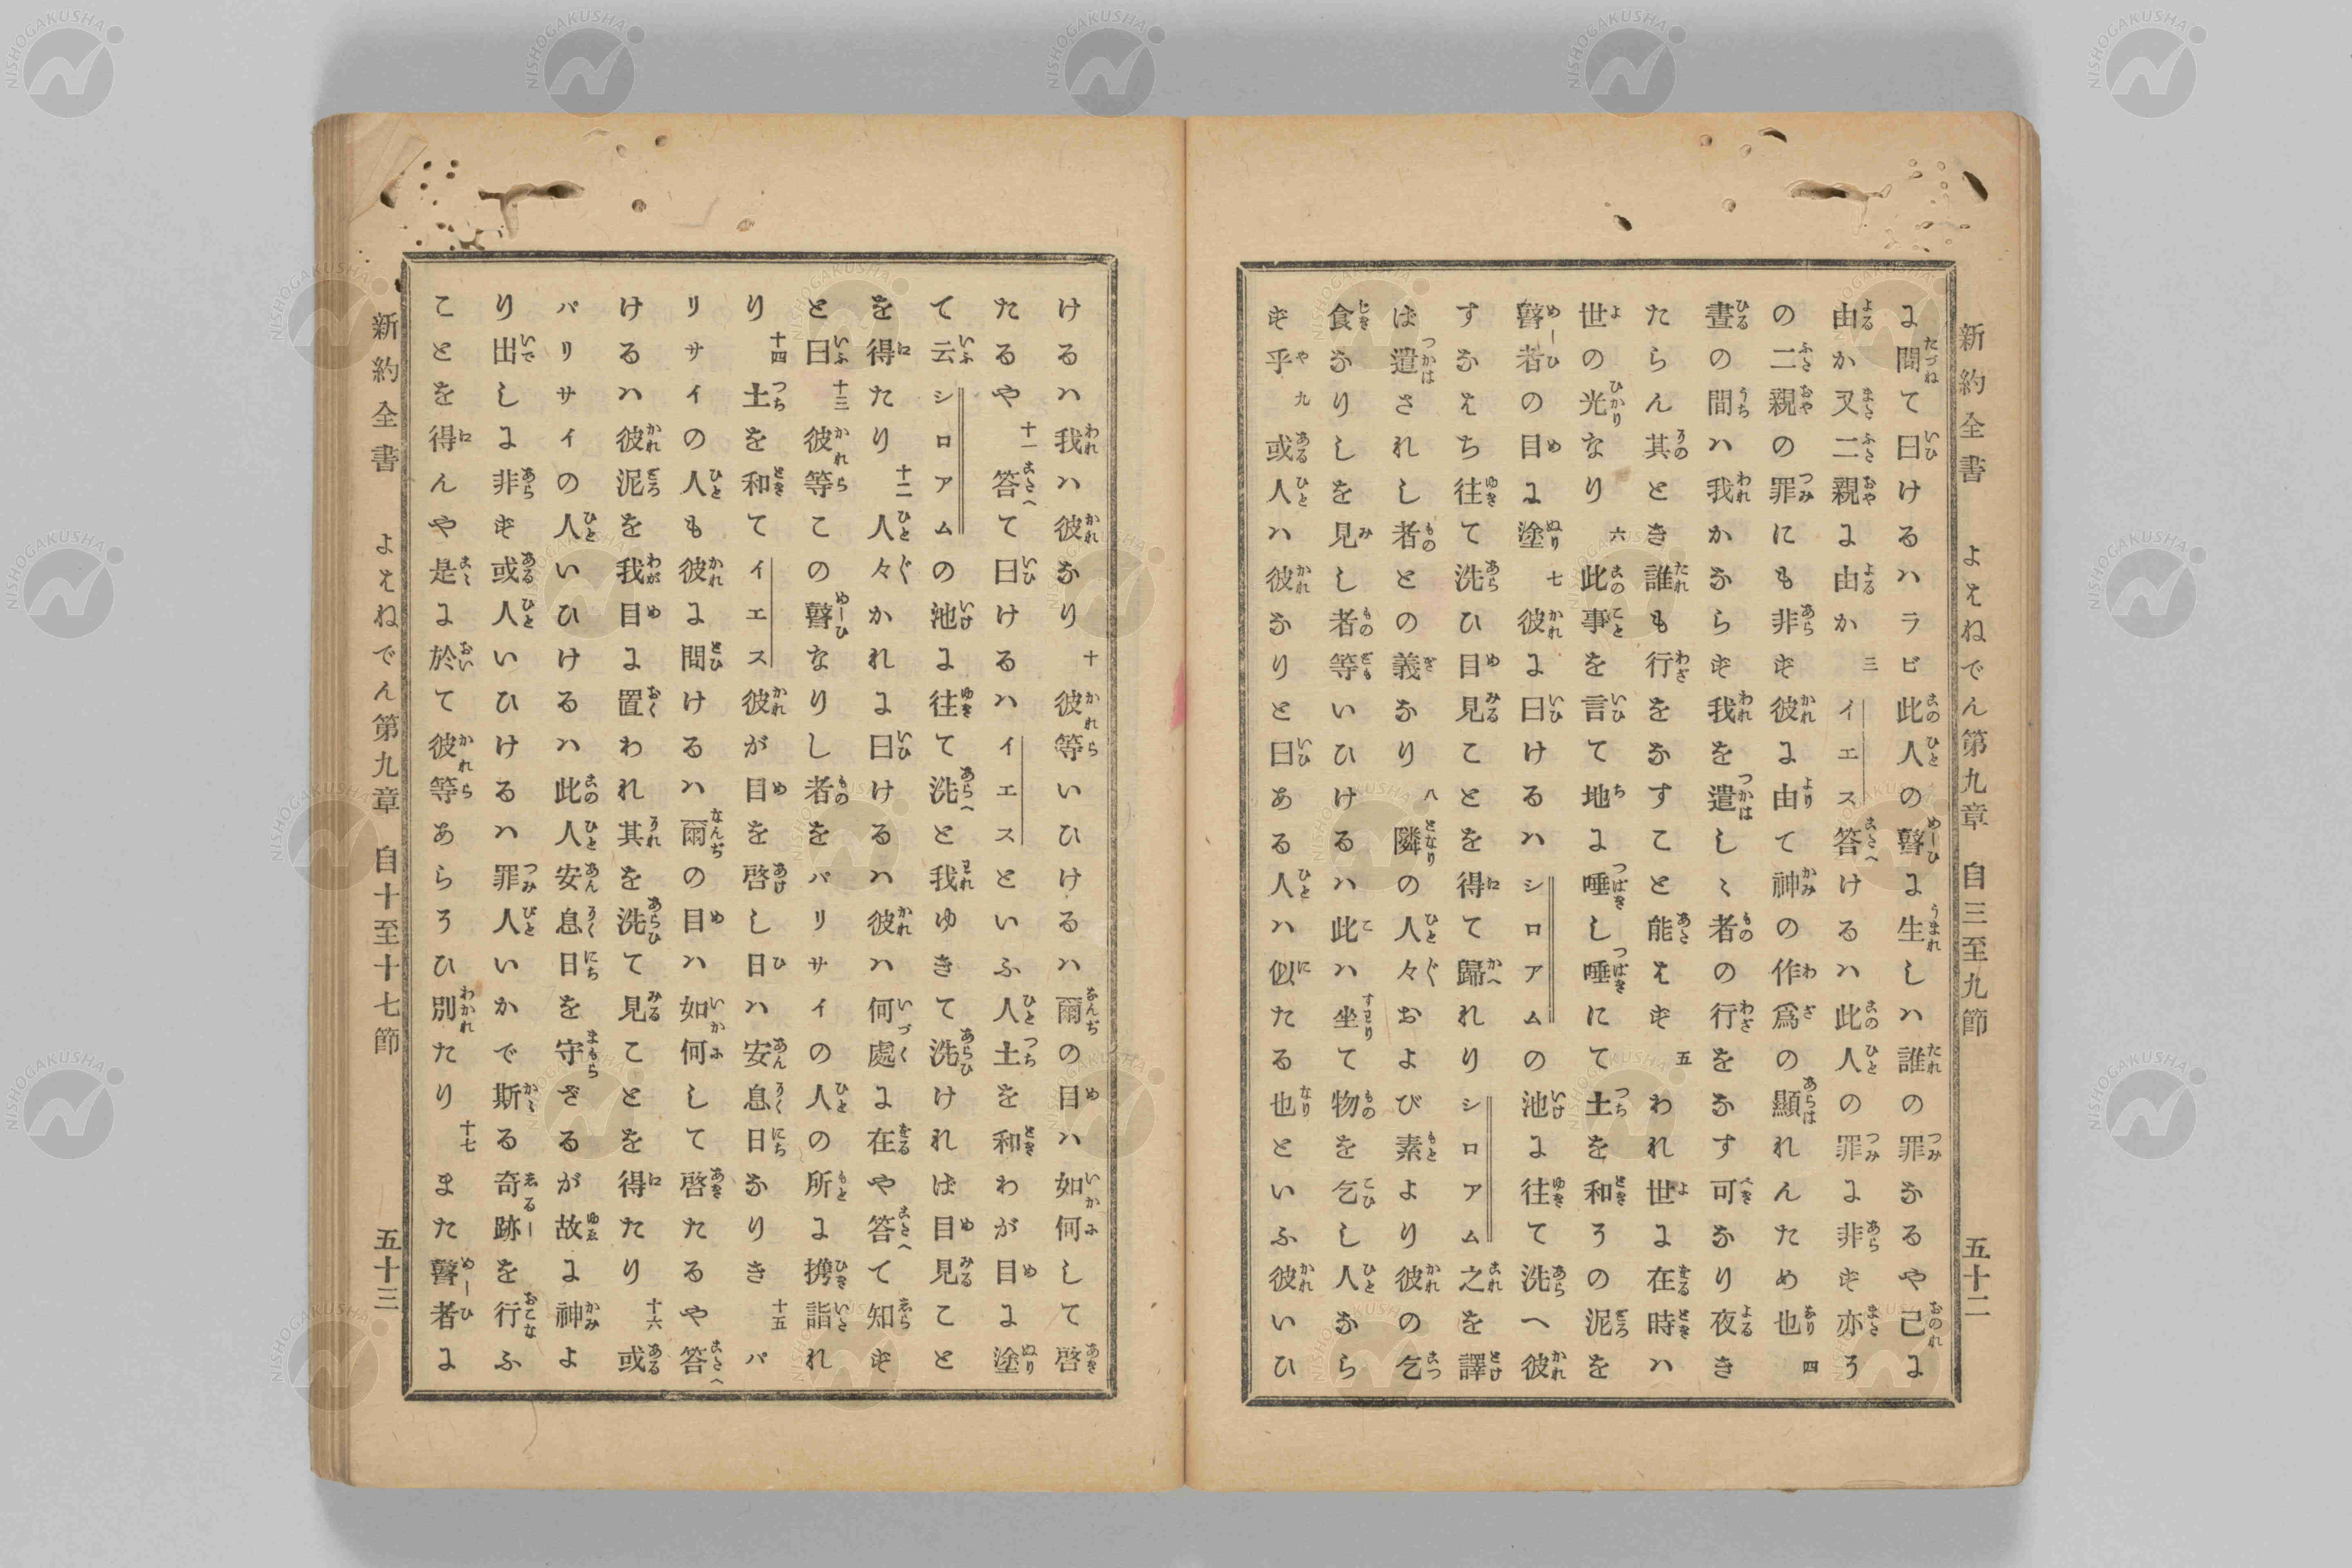 新約全書 よはねでん第九章 自三至九節 五十二
に問て曰けるハラビ此人の瞽に生しハ誰の罪なるや己に
由るか又二親に由か三イエス答けるハ此人の罪に非ず亦そ
の二親の罪にも非ず彼に由て神の作爲の顯れんため也四
晝の間ハ我かならず我を遣しゝ者の行をなす可なり夜き
たらん其とき誰も行をなすこと能はず五われ世に在時ハ
世の光なり六此事を言て地に唾し唾にて土を和その泥を
瞽者の目に塗七彼に曰けるハシロアムの池に往て洗へ彼
すなはち往て洗ひ目見ことを得て歸れりシロアム之を譯
ば遣されし者との義なり八隣の人々および素より彼の乞
食なりしを見し者等いひけるハ此ハ坐て物を乞し人なら
ず乎九或人ハ彼なりと曰ある人ハ似たる也といふ彼いひ
けるハ我ハ彼なり十彼等いひけるハ爾の目ハ如何して啓
たるや十一答て曰けるハイエスといふ人土を和わが目に塗
て云シロアムの池に往て洗へと我ゆきて洗ければ目見こと
を得たり十二人々かれに曰けるハ彼ハ何處に在や答て知ず
と曰十三彼等この瞽なりし者をパリサイの人の所に携詣れ
り十四土を和てイエス彼が目を啓し日ハ安息日なりき十五パ
リサイの人も彼に問けるハ爾の目ハ如何して啓たるや答
けるハ彼泥を我目に置われ其を洗て見ことを得たり十六或
パリサイの人いひけるハ此人安息日を守ざるが故に神よ
り出しに非ず或人いひけるハ罪人いかで斯る奇跡を行ふ
ことを得んや是に於て彼等あらそひ別たり十七また瞽者に
新約全書 よはねでん第九章 自十至十七節 五十三